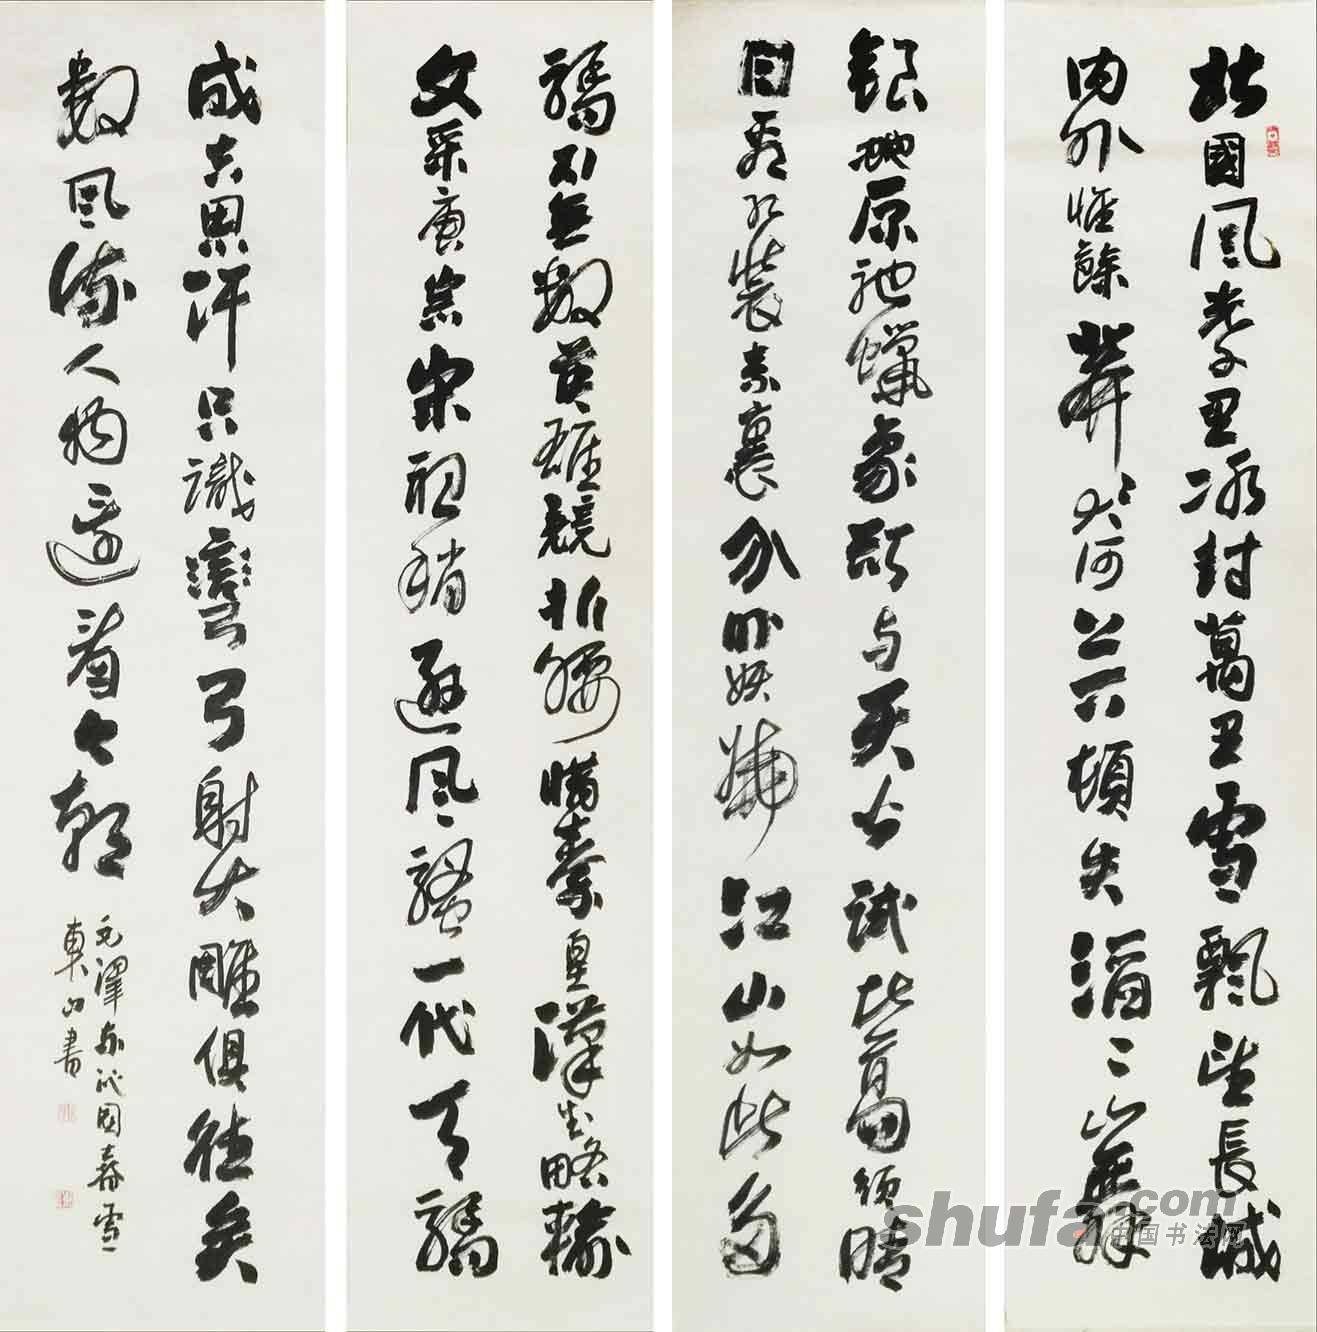 北國風光千里冰封萬里雪飄望長城
内外惟餘莽〻大河上下頓失滔〻山舞
銀蛇原馳蠟象欲与天公試比高須晴
日看紅裝素裹分外妖嬈江山如此多
嬌引無數英雄競折腰惜秦皇漢武略輸
文采唐宗宋祖稍遜風騷一代天驕
成吉思汗只識彎弓射大雕俱往矣
數風流人物還看今朝
毛澤東沁園春雪
東山書
shufa.com
中国书法网